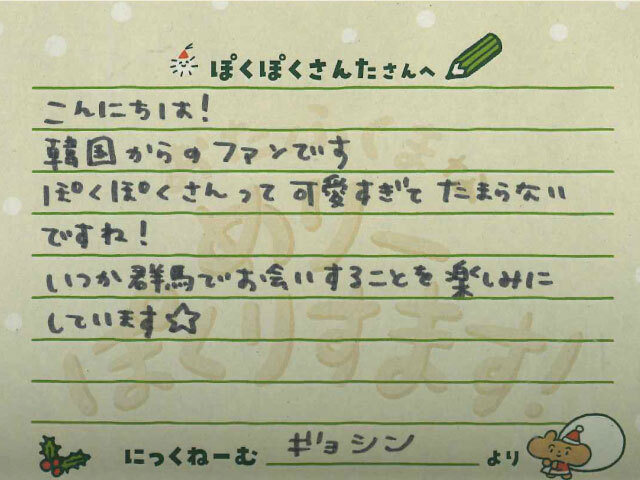 ぽくぽくさんたさんへ
こんにちは!
韓国からのファンです
ぽくぽくさんって可愛すぎてたまらない
ですね!
いつか群馬でお会いすることを楽しみに
しています☆
にっくねーむ ギョシン より
めりー
ぽくりすます!